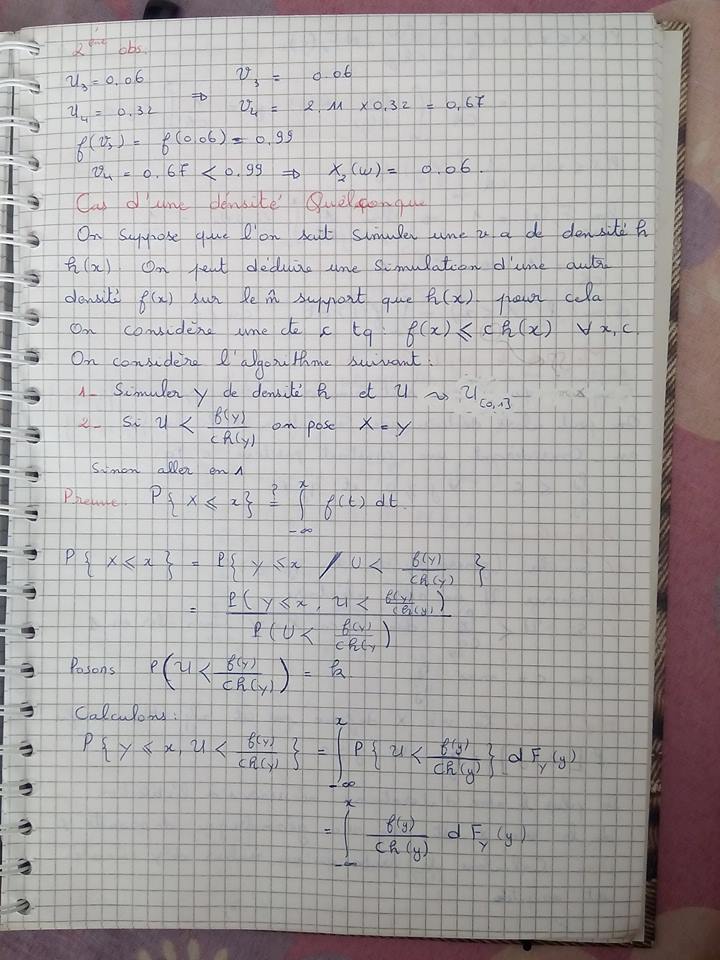 2ème obs.
U₃ = 0.06 ⇒ V₃ = 0.06
U₄ = 0.32 V₄ = 2.11 × 0.32 = 0,67
f(V₃) = f(0.06) = 0.99
V₄ = 0.67 < 0.99 ⇒ X₂(ω) = 0.06.
Cas d'une dénsité Quélçonque
On Suppose que l'on sait simuler une v.a de densité h
h(x). On peut déduire une Simulation d'une autre
densité f(x) sur le m̂ support que h(x). pour cela
On considère une cte c tq : f(x) ⩽ c h(x) ∀ x, c.
On considère l'algorithme suivant :
1- Simuler Y de densité h et U ~ U[0,1]
2- Si U < f(y)/ch(y) on pose X = Y
Sinon aller en 1
Preuve. P{ X ⩽ x } ≟ ∫_{-∞}^{x} f(t) dt.
P{ X ⩽ x } = P{ Y ⩽ x / U < f(y)/ch(y) }
= P( Y ⩽ x, U < f(y)/ch(y) ) / P( U < f(y)/ch(y) )
Posons P( U < f(y)/ch(y) ) = k
Calculons :
P{ Y ⩽ x, U < f(y)/ch(y) } = ∫_{-∞}^{x} P{ U < f(y)/ch(y) } d F_Y(y)
= ∫_{-∞}^{x} f(y)/ch(y) d F_Y(y)